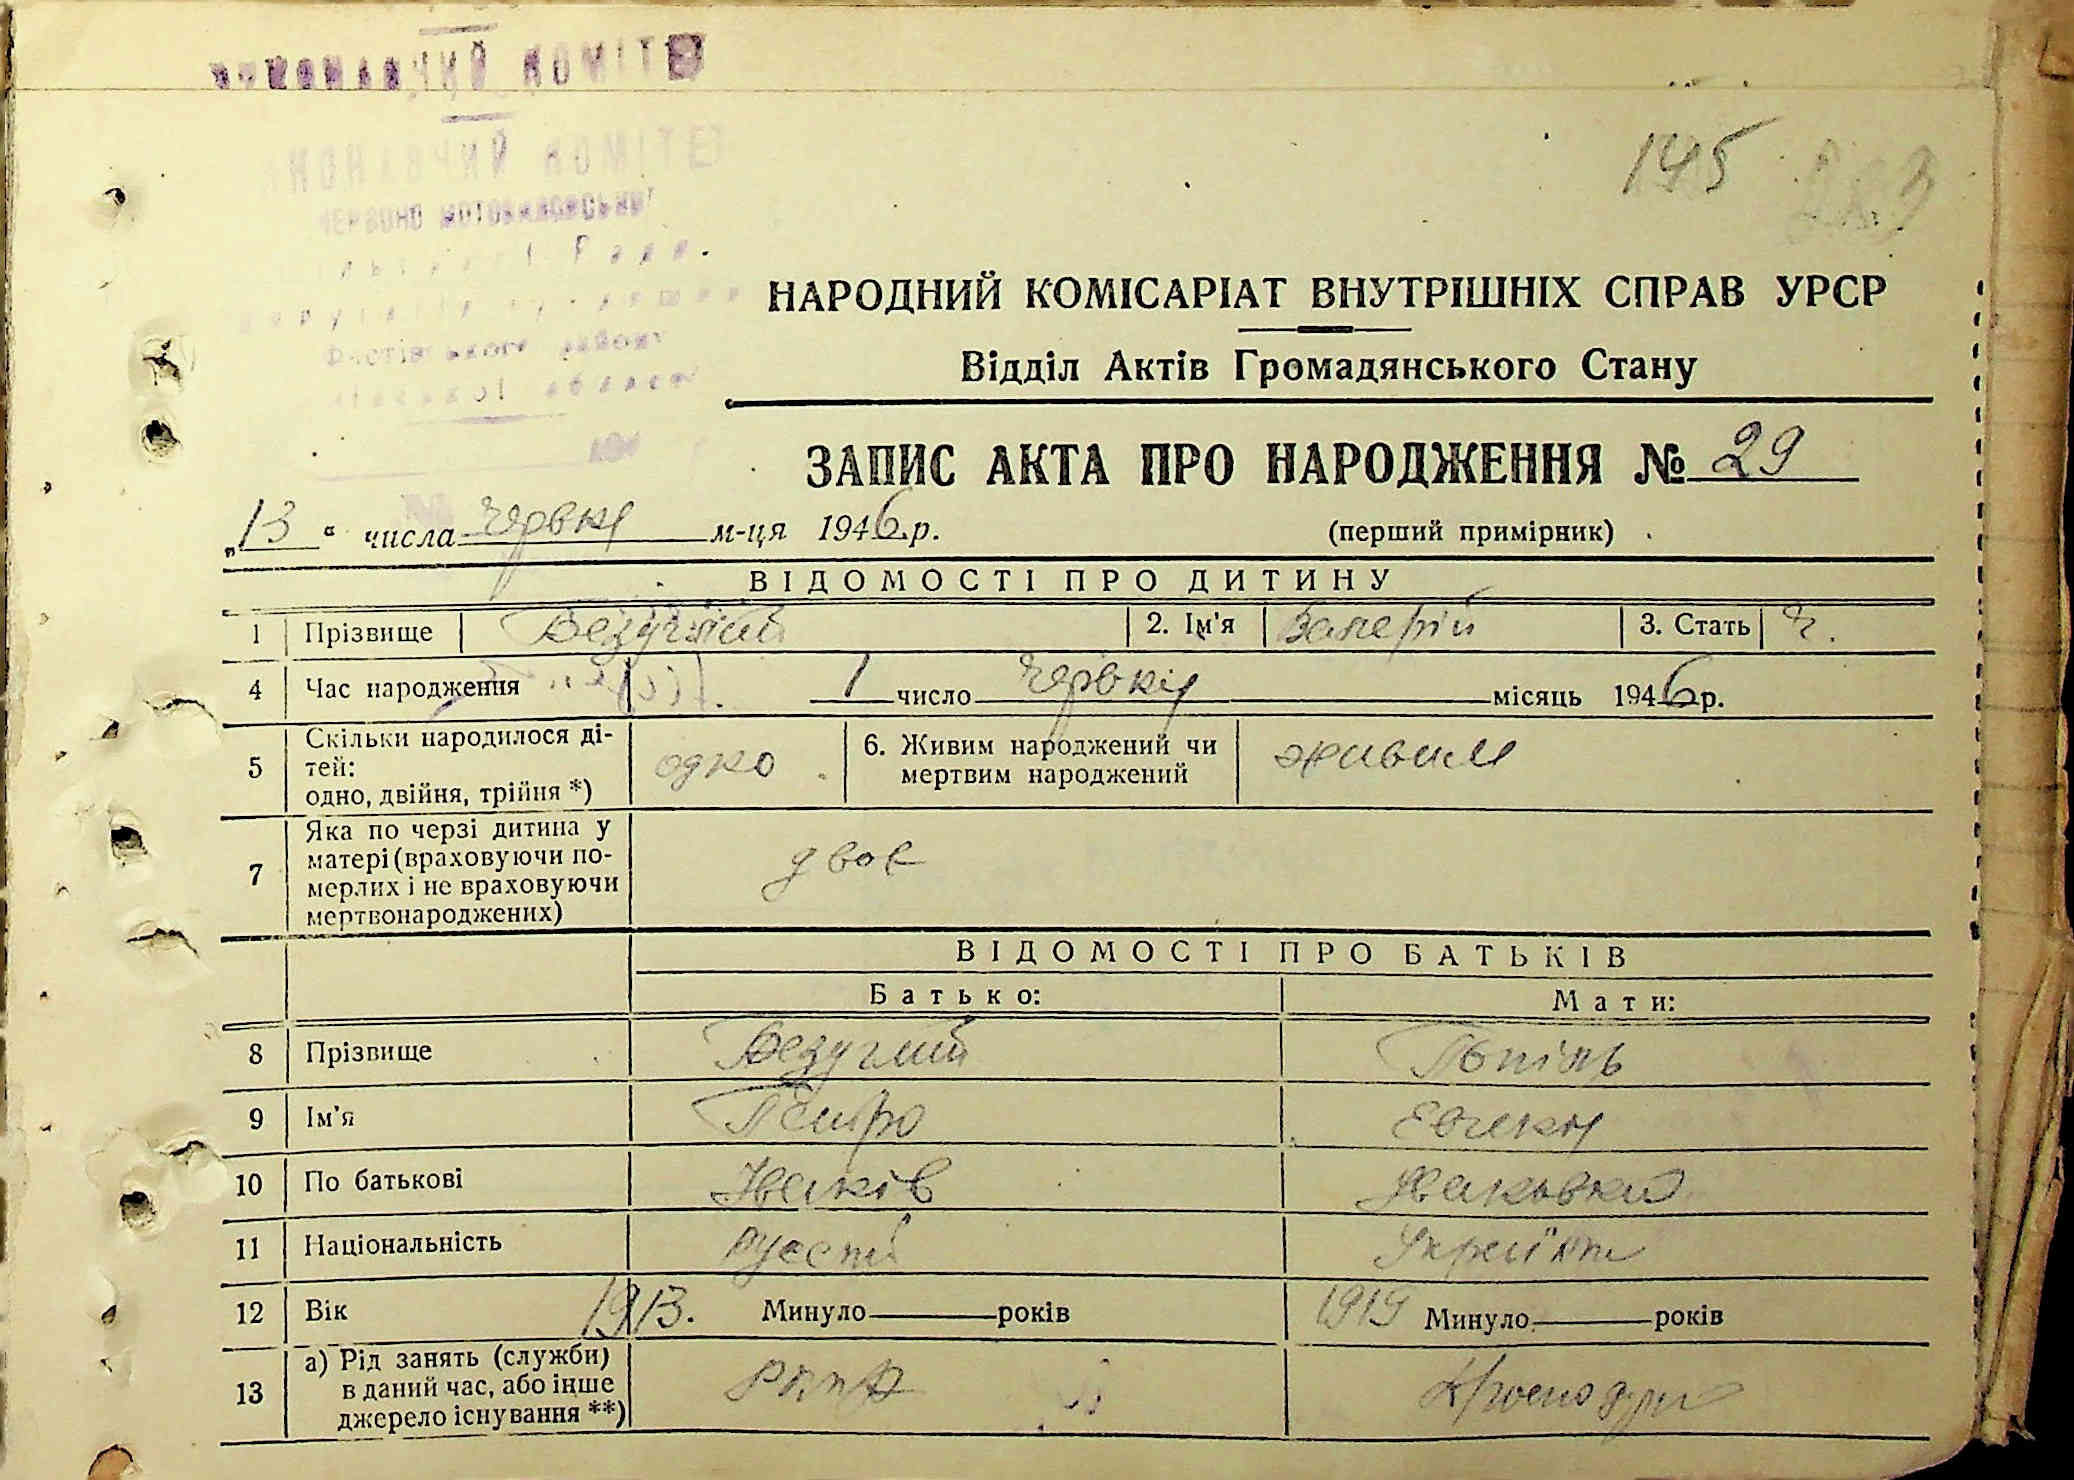 ВИКОНАВЧИЙ КОМІТЕТ
145
ВИКОНАВЧИЙ КОМІТЕТ
ЧЕРВОНО МОТОВИЛІВСЬКОЇ
Ради
Фастівського району
області
НАРОДНИЙ КОМІСАРІАТ ВНУТРІШНІХ СПРАВ УРСР
Відділ Актів Громадянського Стану
ЗАПИС АКТА ПРО НАРОДЖЕННЯ № 29
„13“ числа червня м-ця 1946 р.
(перший примірник)
ВІДОМОСТІ ПРО ДИТИНУ
1 Прізвище 2. Ім'я Валерій 3. Стать Ч.
4 Час народження 1 число червня місяць 1946 р.
5 Скільки народилося ді-
тей:
одно, двійня, трійня *) одно
6. Живим народжений чи
мертвим народжений живим
7 Яка по черзі дитина у
матері (враховуючи по-
мерлих і не враховуючи
мертвонароджених) двоє
ВІДОМОСТІ ПРО БАТЬКІВ
Батько: Мати:
8 Прізвище Безуглий
9 Ім'я Петро Евгения
10 По батькові Іванів Івановна
11 Національність
12 Вік 1913. Минуло років 1919 Минуло років
13 а) Рід занять (служби)
в даний час, або інше
джерело існування **)